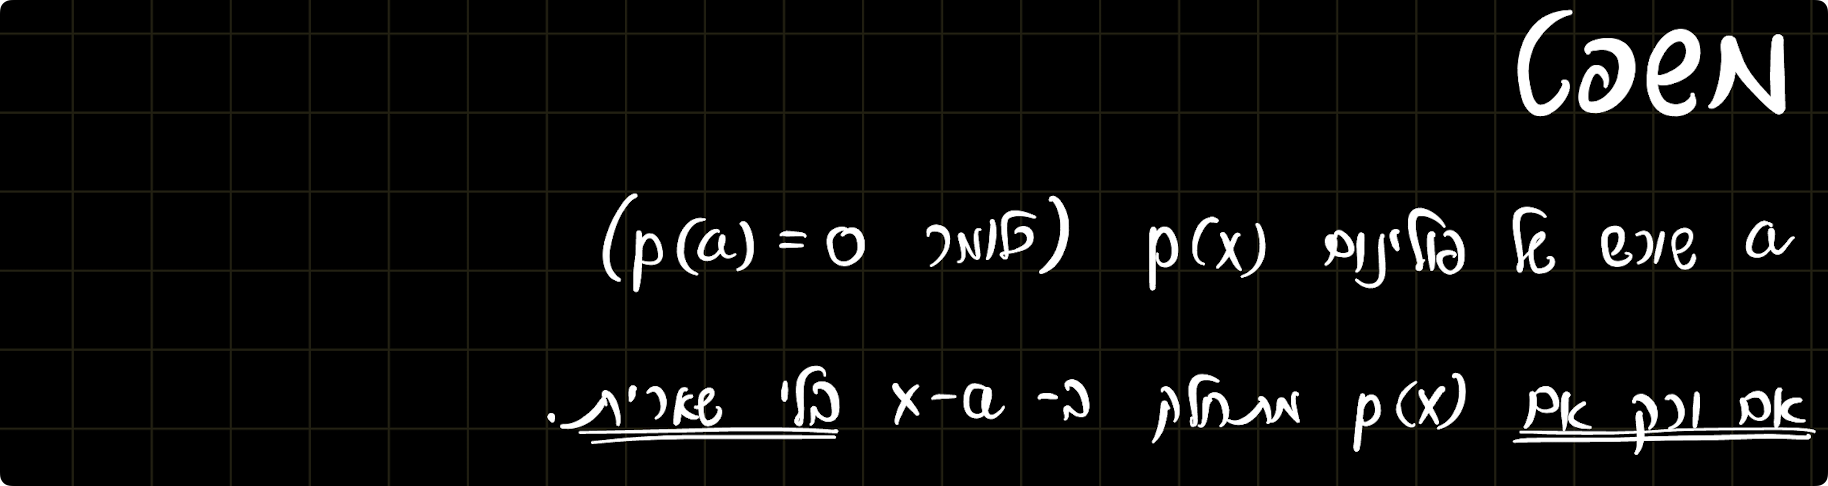 משפט
a שורש של פולינום p(x) (כלומר p(a) = 0)
אם ורק אם p(x) מתחלק ב- x-a בלי שארית.